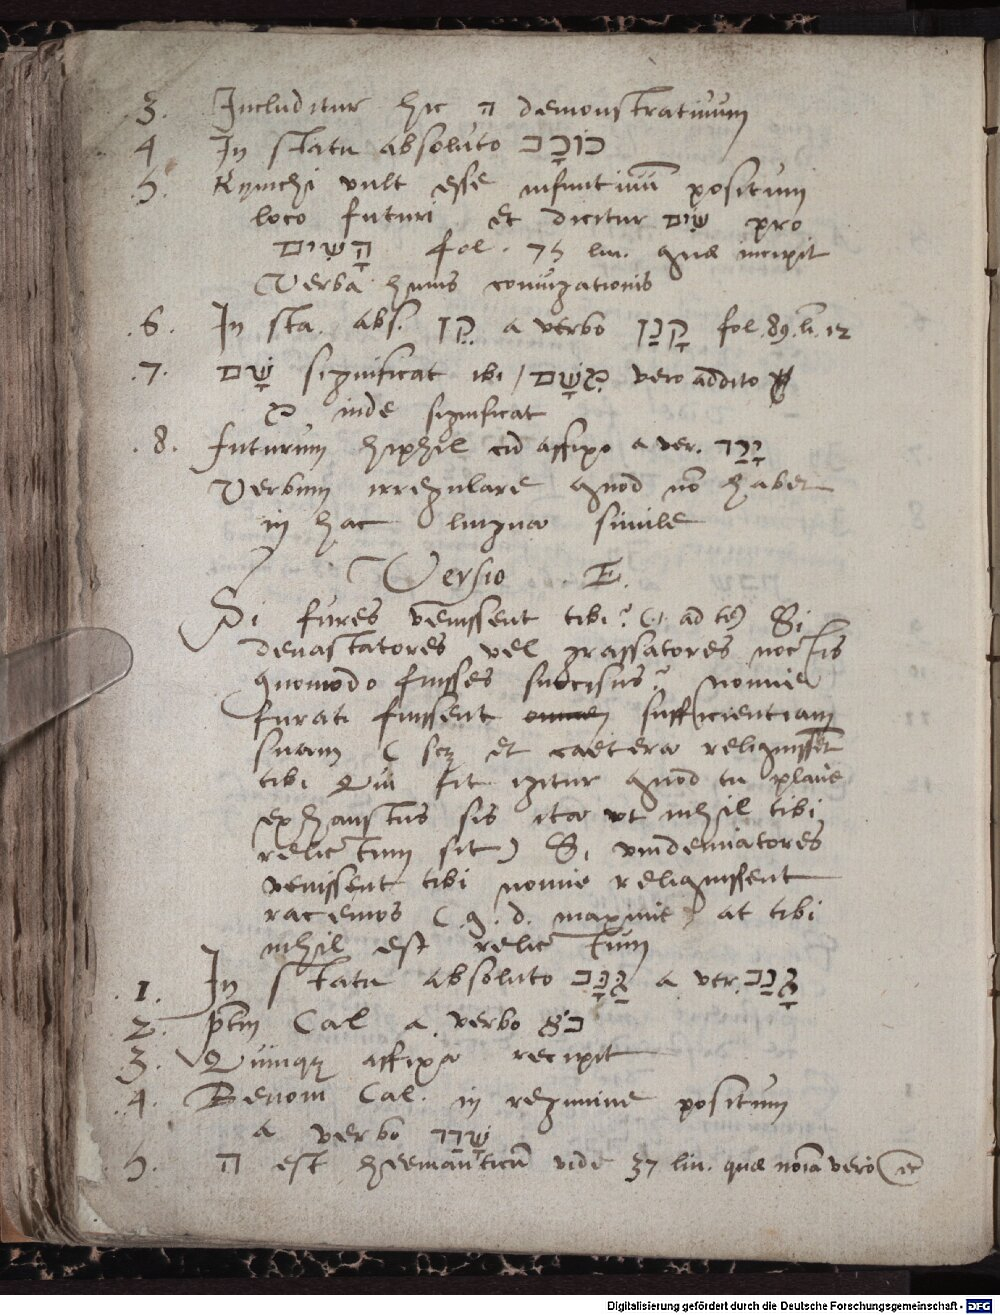 3. Includitur hic ה demonstrativum
4 In statu absoluto כוֹכָב
5. Kymchi vult esse infinitivū positum
loco futuri et dicitur שִׂים pro
הָשִׂים fol. 75 lin. quæ incipit
Verba huius coniugationis
6. In sta. abs. קֵן a verbo קָנַן fol. 89. li. 12
7. שָׁם significat ibi / מִשָּׁם vero addito
מִ inde significat
8. futurum hiphil cū affixo a ver. יָרַד
Verbum irregulare quod nō habet
in hac lingua simile
Versio E.
Si fures venissent tibi? (i. ad te) Si
devastatores vel grassatores noctis
quomodo fuisses succisus? nonne
furati fuissent sufficientiam
suam ( scz et caetera reliquissēt
tibi Qui fit igitur quod tu plane
exhaustus sis ita ut nihil tibi
relictum sit) Si vindemiatores
venissent tibi nonne reliquissent
racemos ( q. d. maxime ) at tibi
nihil est relictum
1. In statu absoluto גַּנָּב a ver. גָּנַב
2. ptm Cal a verbo בּוֹא
3. Quinqz affixa recipit
4. Benoni Cal. in regimine positum
a verbo שָׁדַד
5. ה est heemanticū vide 37 lin. quæ noīa vero etc
Digitalisierung gefördert durch die Deutsche Forschungsgemeinschaft - DFG